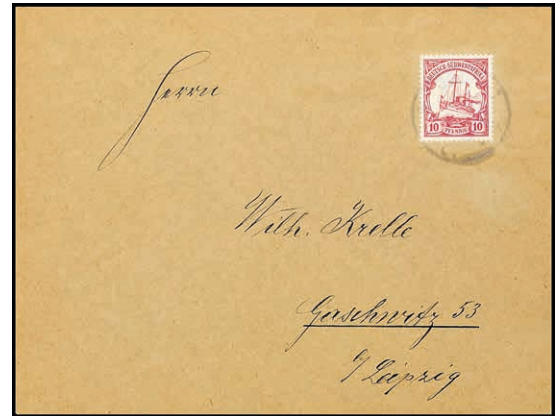 DEUTSCH-SÜDWESTAFRIKA
10 PFENNIG 10
Herrn
Wilh. Krelle
Gaschwitz 53
b/ Leipzig